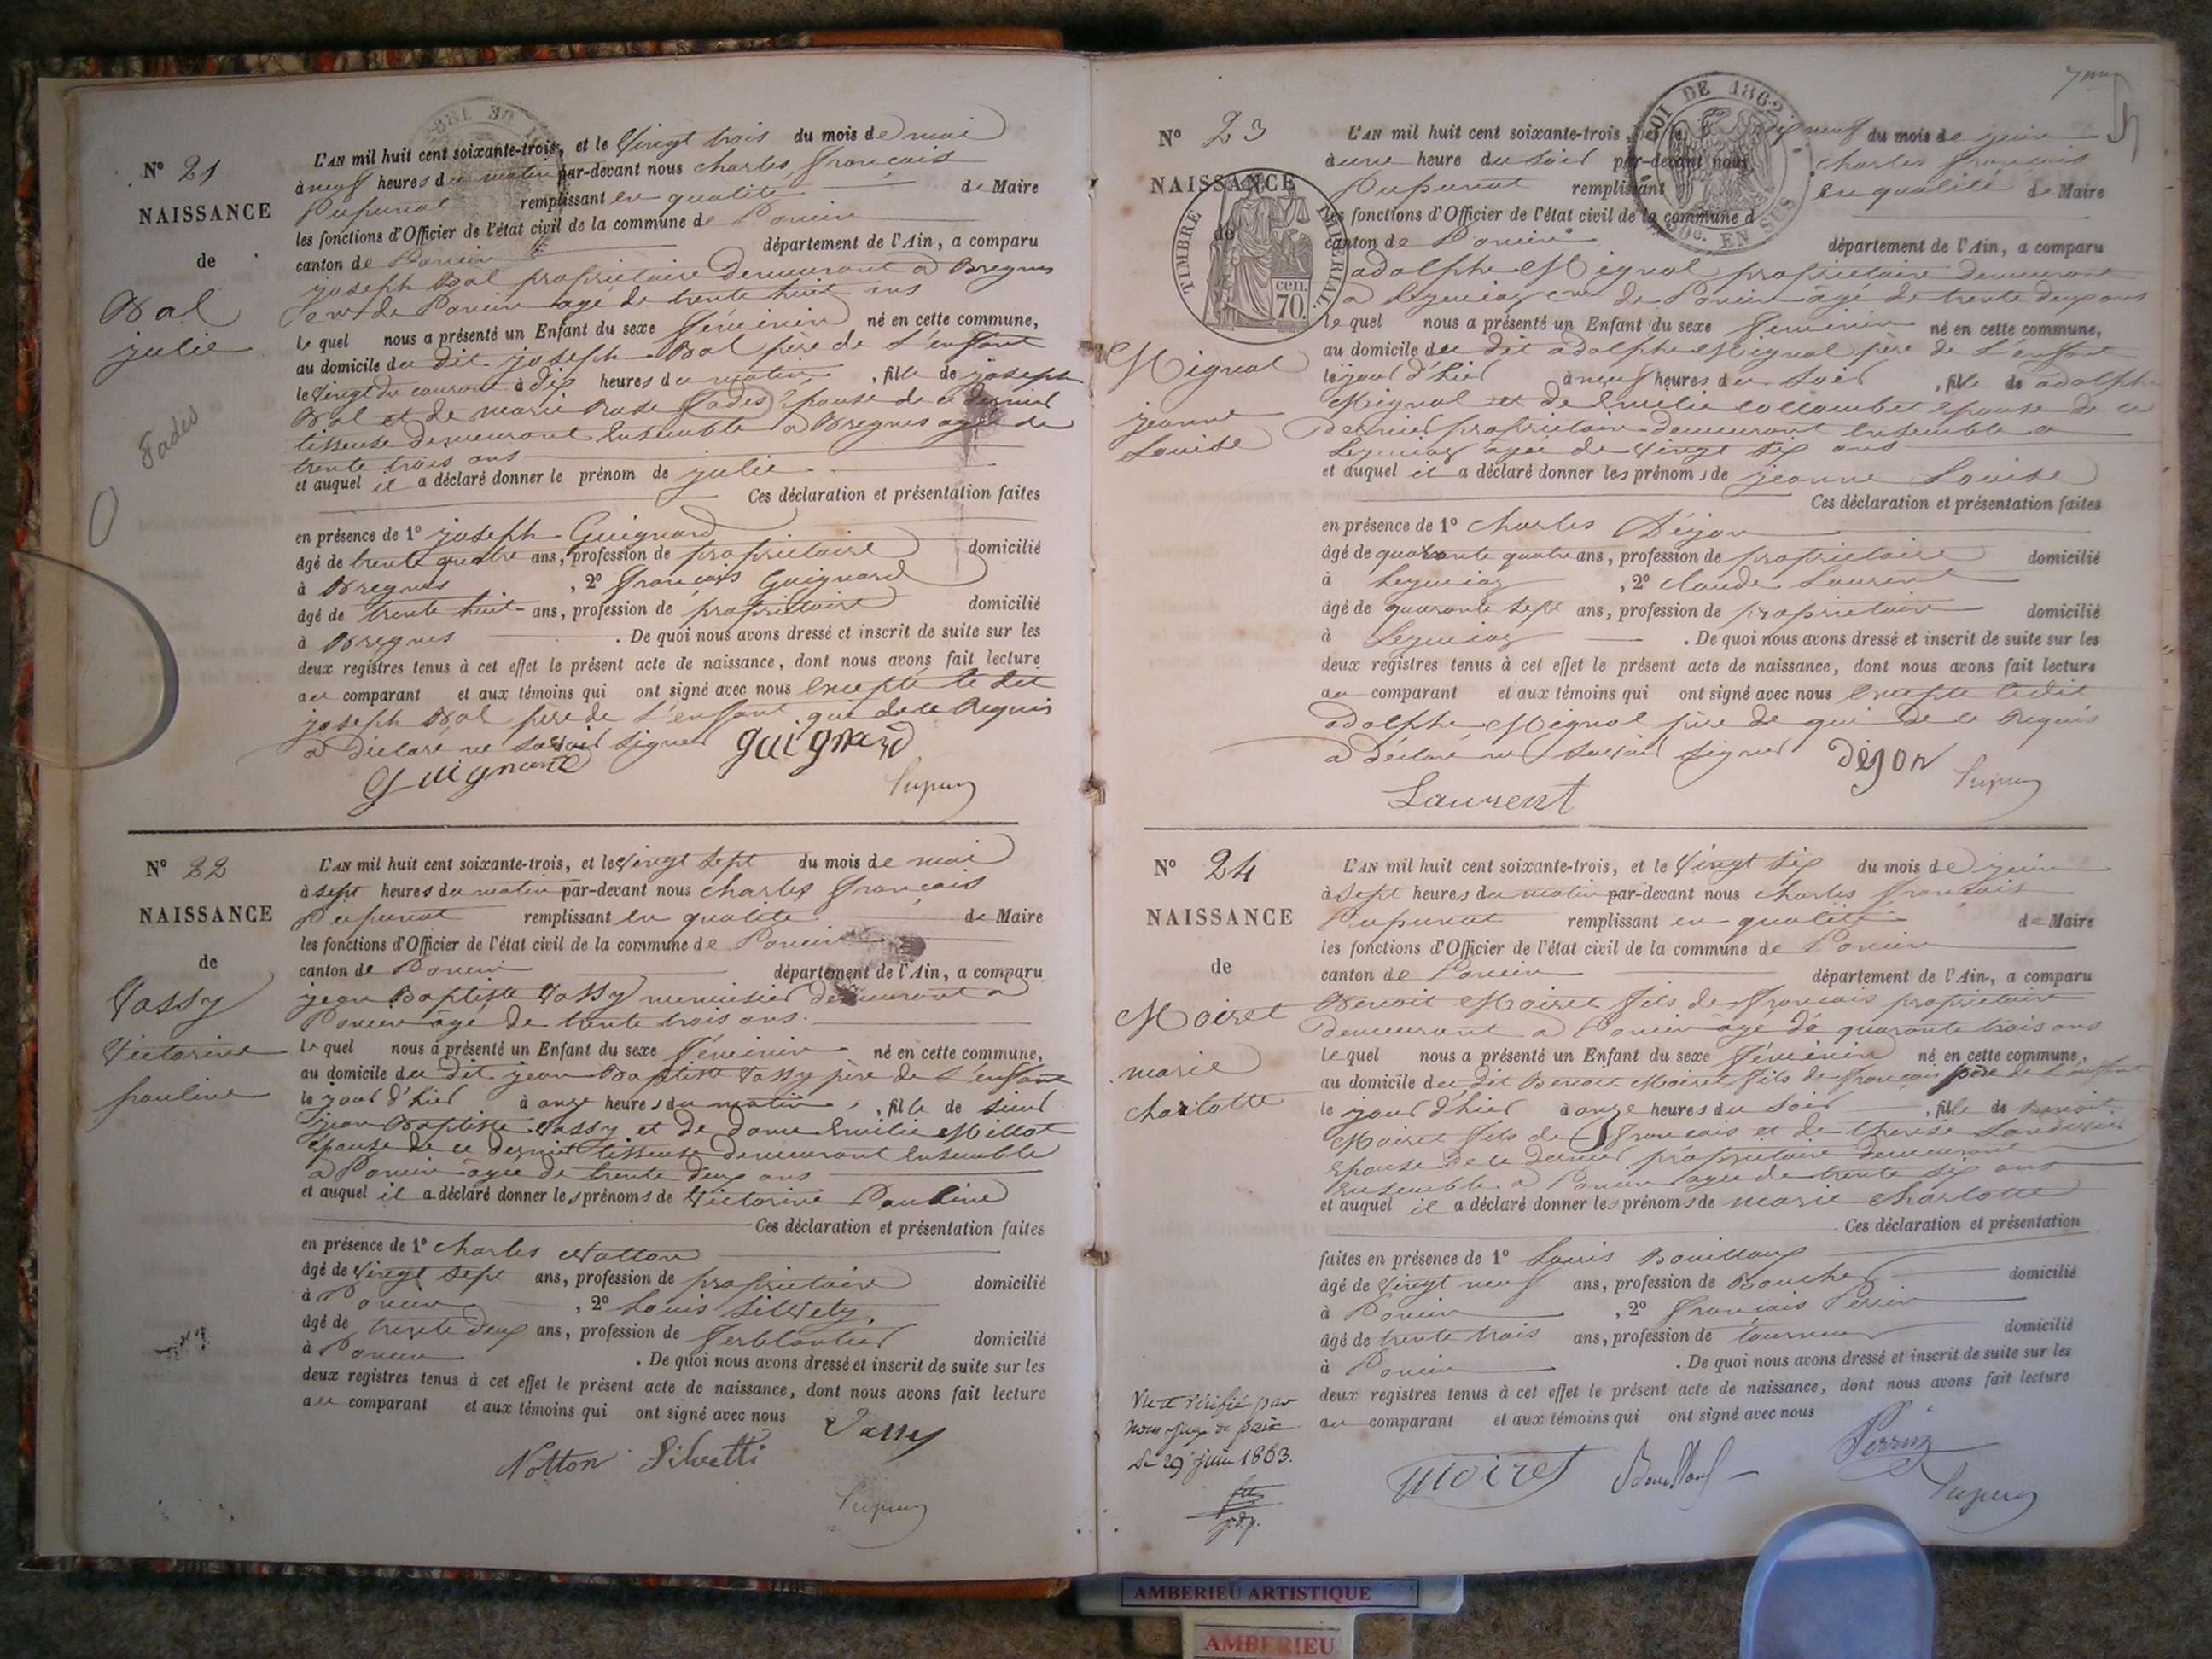 N° 21
NAISSANCE
de
Bal
julie
Fades
L'AN mil huit cent soixante-trois, et le Vingt trois du mois de mai
à neuf heures du matin par-devant nous Charles, françois
Pupunat remplissant en qualité de Maire
les fonctions d'Officier de l'état civil de la commune de Poncin
canton de Poncin département de l'Ain, a comparu
joseph Bal propriétaire demeurant à Bregnes
Cne de Poncin agé de trente huit ans
le quel nous a présenté un Enfant du sexe féminin né en cette commune,
au domicile du dit joseph Bal père de l'enfant
le Vingt du courant à dix heures du matin, fille de joseph
Bal et de marie Rose fades épouse de ce dernier
tisseuse demeurant Ensemble à Bregnes agée de
trente trois ans
et auquel il a déclaré donner le prénom de julie
Ces déclaration et présentation faites
en présence de 1° joseph Guignard
âgé de trente quatre ans, profession de propriétaire domicilié
à Bregnes , 2° françois Guignard
âgé de trente huit ans, profession de propriétaire domicilié
à Bregnes . De quoi nous avons dressé et inscrit de suite sur les
deux registres tenus à cet effet le présent acte de naissance, dont nous avons fait lecture
au comparant et aux témoins qui ont signé avec nous Excepté le dit
joseph Bal père de l'enfant qui de ce Requis
a déclaré ne savoir signer guignard
Guignard
Pupun
N° 22
NAISSANCE
de
Vassy
Victorine
pauline
L'AN mil huit cent soixante-trois, et le Vingt sept du mois de mai
à sept heures du matin par-devant nous Charles françois
Pupunat remplissant en qualité de Maire
les fonctions d'Officier de l'état civil de la commune de Poncin
canton de Poncin département de l'Ain, a comparu
jean Baptiste Vassy menuisier demeurant à
Poncin âgé de trente trois ans
le quel nous a présenté un Enfant du sexe féminin né en cette commune,
au domicile du dit jean Baptiste Vassy père de l'enfant
le jour d'hier à onze heures du matin, fille de sieur
jean Baptiste Vassy et de dame Emilie Millot
épouse de ce dernier tisseuse demeurant Ensemble
à Poncin agée de trente deux ans
et auquel il a déclaré donner les prénoms de Victorine Pauline
Ces déclaration et présentation faites
en présence de 1° Charles Notton
âgé de Vingt sept ans, profession de propriétaire domicilié
à Poncin , 2° Louis Silvety
âgé de trente deux ans, profession de ferblantier domicilié
à Poncin . De quoi nous avons dressé et inscrit de suite sur les
deux registres tenus à cet effet le présent acte de naissance, dont nous avons fait lecture
au comparant et aux témoins qui ont signé avec nous Vassy
Notton Silvetti
Pupun
7me
N° 23
NAISSANCE
de
Mignal
jeanne
Louise
TIMBRE IMPERIAL
cen. 70.
LOI DE 1862
50c. EN SUS
L'AN mil huit cent soixante-trois, et le dix neuf du mois de juin
à une heure du soir par-devant nous Charles françois
Pupunat remplissant en qualité de Maire
les fonctions d'Officier de l'état civil de la commune d
canton de Poncin département de l'Ain, a comparu
adolphe Mignal propriétaire demeurant
à Leymiaz Cne de Poncin âgé de trente deux ans
le quel nous a présenté un Enfant du sexe féminin né en cette commune,
au domicile du dit adolphe Mignal père de l'enfant
le jour d'hier à neuf heures du soir, fille de adolphe
Mignal et de Emilie Collombet épouse de ce
dernier propriétaire demeurant Ensemble à
Leymiaz agée de Vingt six ans
et auquel il a déclaré donner les prénoms de jeanne Louise
Ces déclaration et présentation faites
en présence de 1° Charles Déjon
âgé de quarante quatre ans, profession de propriétaire domicilié
à Leymiaz , 2° Claude Laurent
âgé de quarante sept ans, profession de propriétaire domicilié
à Leymiaz . De quoi nous avons dressé et inscrit de suite sur les
deux registres tenus à cet effet le présent acte de naissance, dont nous avons fait lecture
au comparant et aux témoins qui ont signé avec nous Excepté le dit
adolphe Mignal père de qui de ce Requis
a déclaré ne savoir signer dégon
Laurent
Pupun
N° 24
NAISSANCE
de
Moiret
marie
charlotte
L'AN mil huit cent soixante-trois, et le Vingt six du mois de juin
à sept heures du matin par-devant nous Charles françois
Pupunat remplissant en qualité de Maire
les fonctions d'Officier de l'état civil de la commune de Poncin
canton de Poncin département de l'Ain, a comparu
Benoit Moiret fils de françois propriétaire
demeurant à Poncin agé de quarante trois ans
le quel nous a présenté un Enfant du sexe féminin né en cette commune,
au domicile du dit Benoit Moiret fils de françois père de l'enfant
le jour d'hier à onze heures du soir, fille de benoit
Moiret fils de françois et de thérèse
Epouse de ce dernier propriétaire demeurant
Ensemble à Poncin agée de trente six ans
et auquel il a déclaré donner les prénoms de marie charlotte
Ces déclaration et présentation
faites en présence de 1° Louis Bouilloux
âgé de Vingt neuf ans, profession de Boucher domicilié
à Poncin , 2° françois Perrin
âgé de trente trois ans, profession de tourneur domicilié
à Poncin . De quoi nous avons dressé et inscrit de suite sur les
deux registres tenus à cet effet le présent acte de naissance, dont nous avons fait lecture
au comparant et aux témoins qui ont signé avec nous
Vu et vérifié par
nous juge de paix
Le 29 juin 1863.
j.d.p.
Moiret Bouilloux Perrin
Pupun
AMBERIEU ARTISTIQUE
AMBERIEU